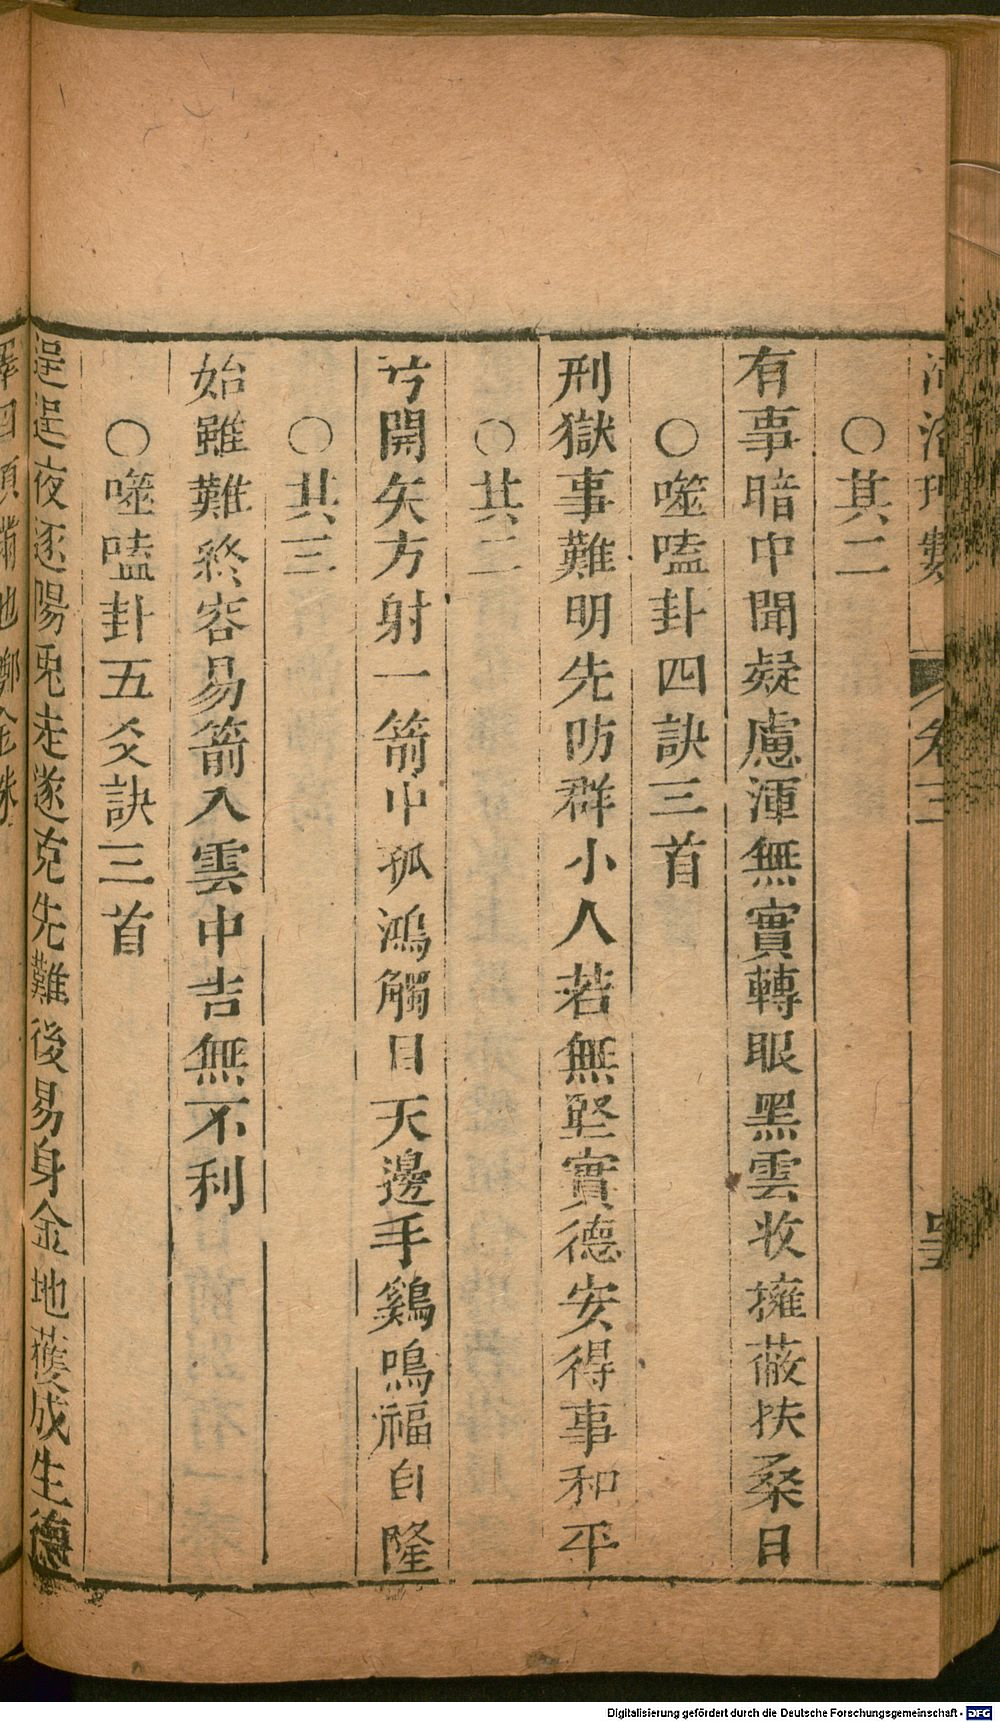 河洛理數 卷三
○其二
有事暗中聞疑慮渾無實轉眼黑雲收擁蔽扶桑日
○噬嗑卦四訣三首
刑獄事難明先防群小人若無堅實德安得事和平
○其二
兮開矢方射一箭中孤鴻觸目天邊手鷄鳴福自隆
○其三
始雖難終容易箭入雲中吉無不利
○噬嗑卦五爻訣三首
逞逞夜逐陽兎走遂克先難後易身金地獲成生德
Digitalisierung gefördert durch die Deutsche Forschungsgemeinschaft - DFG